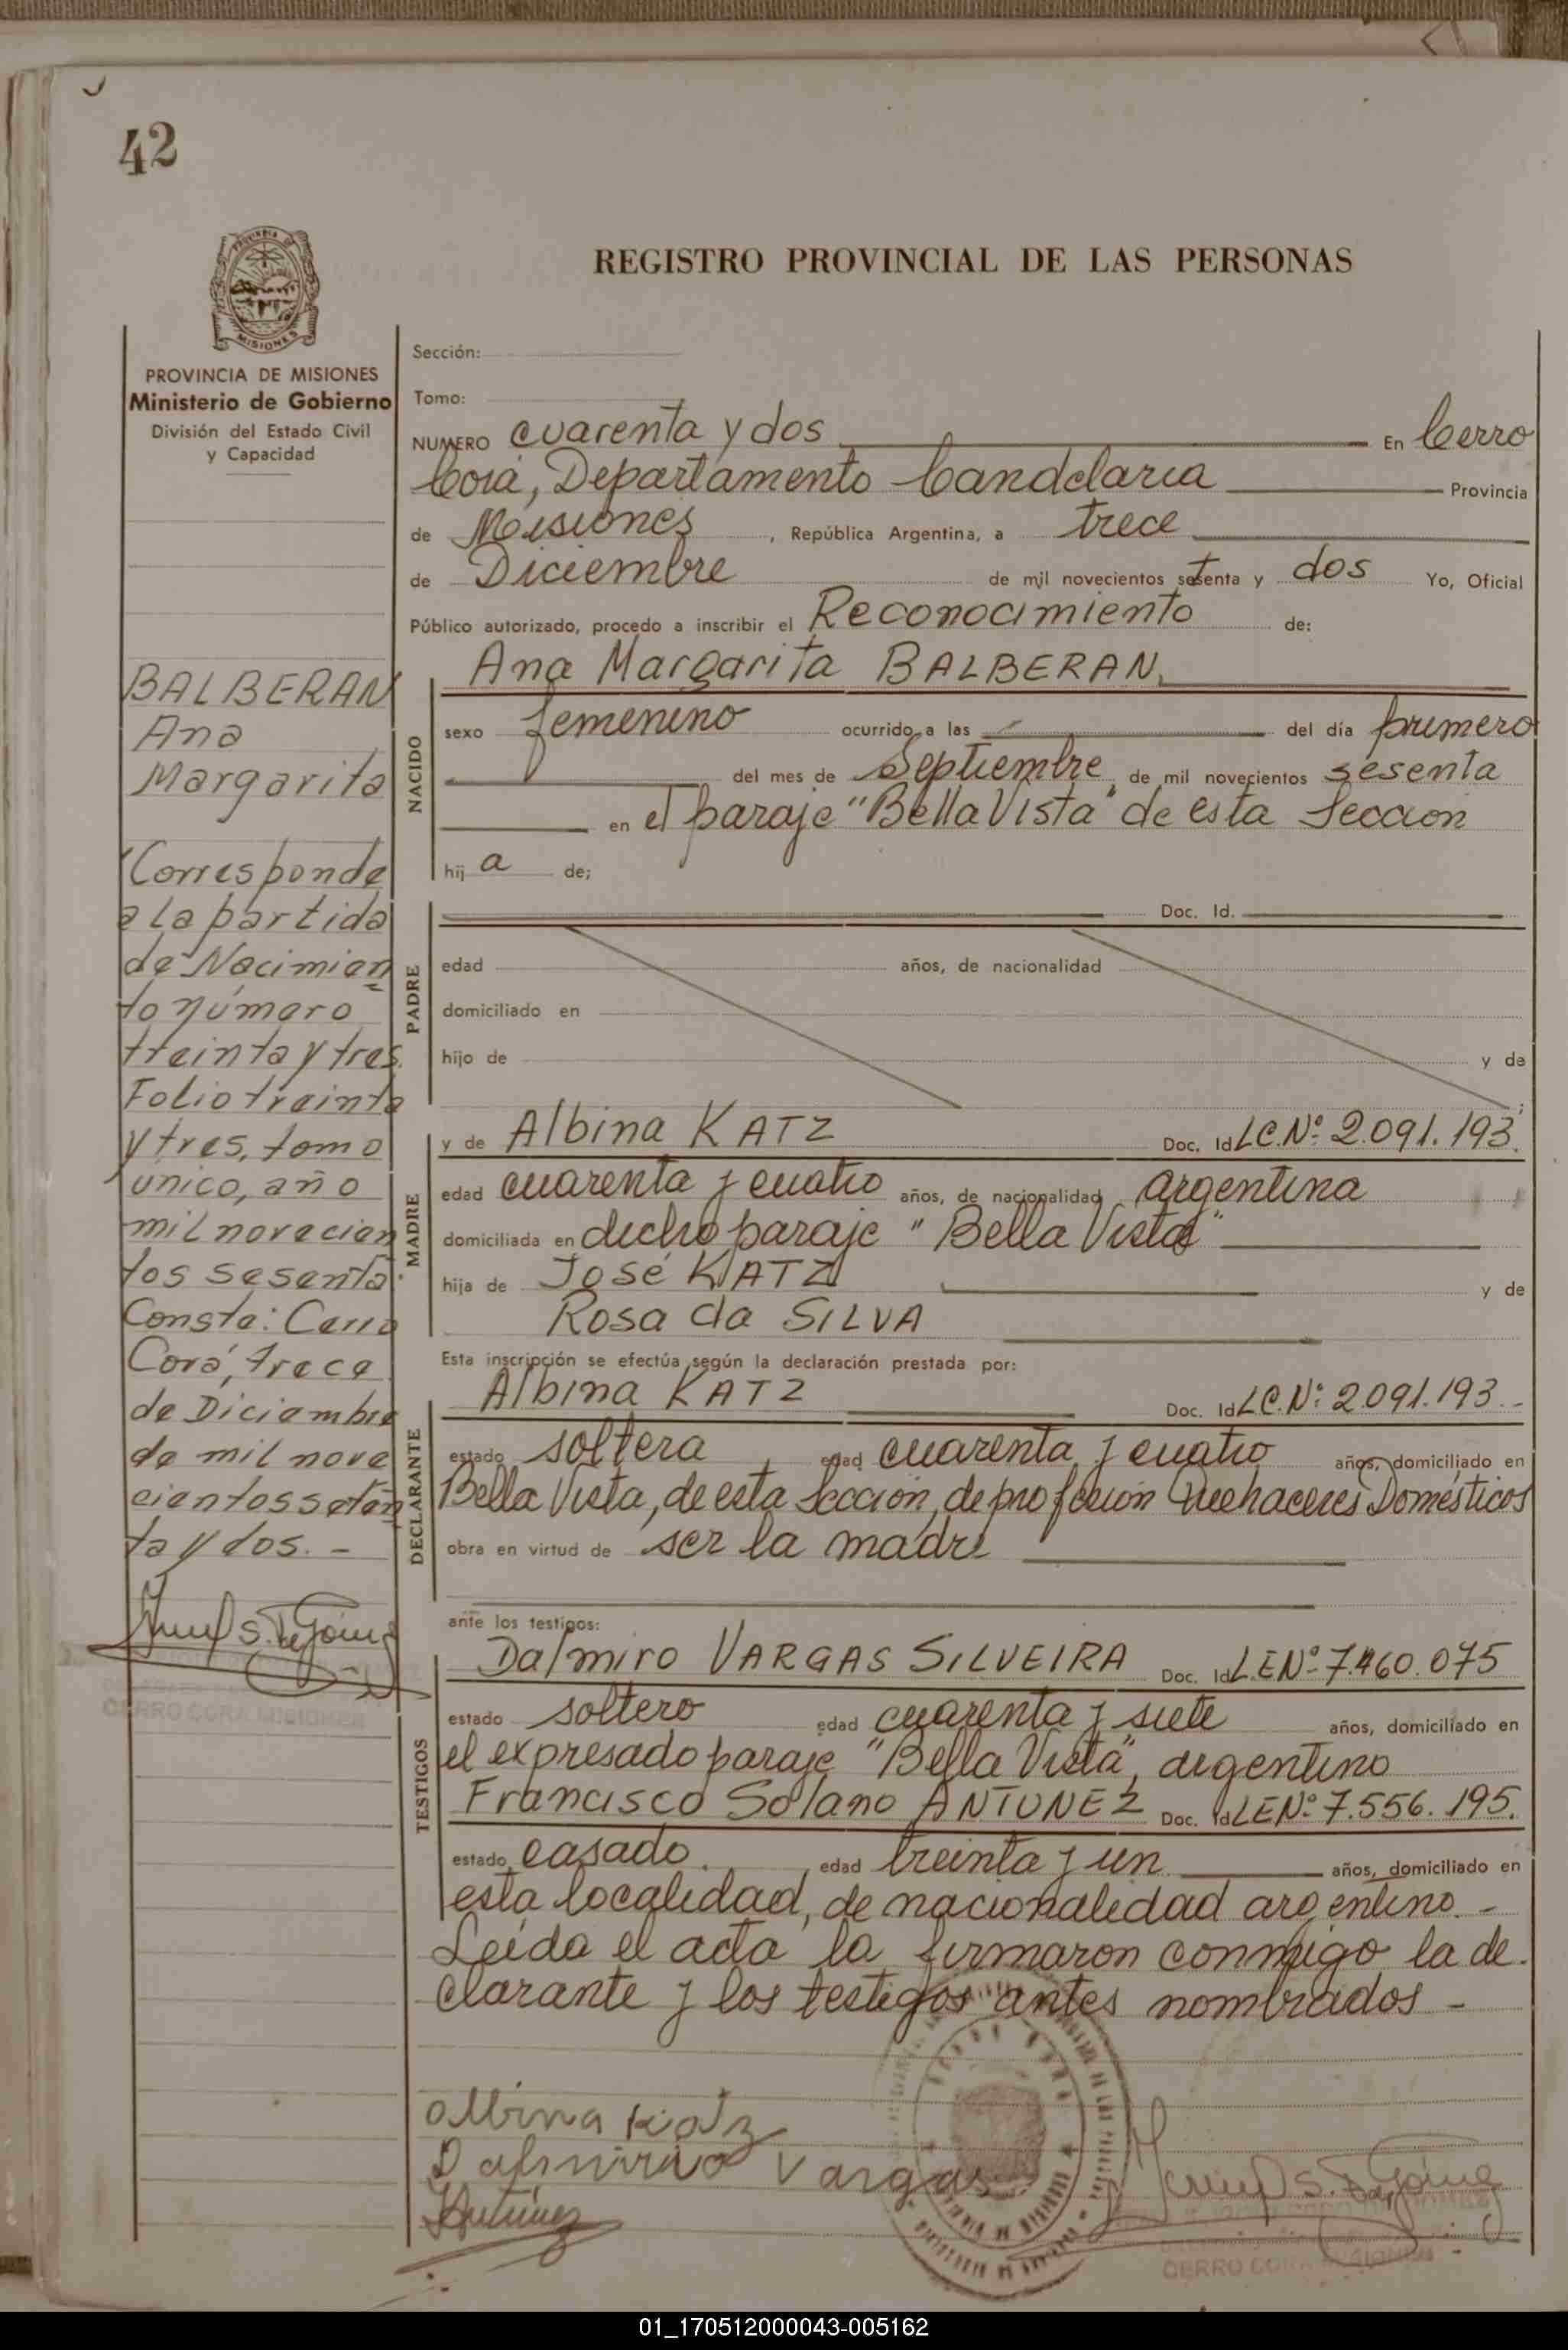 42
REGISTRO PROVINCIAL DE LAS PERSONAS
MISIONES
PROVINCIA DE MISIONES
Ministerio de Gobierno
División del Estado Civil
y Capacidad
BALBERAN
Ana
Margarita
Corresponde
a la partida
de Nacimien
to número
treinta y tres
Folio treinta
y tres, tomo
único, año
mil novecien
tos sesenta.
Consta: Cerro
Corá, trece
de Diciembre
de mil nove
cientos seten
ta y dos. -
CERRO CORA MISIONES
Sección:
Tomo:
NUMERO cuarenta y dos En Cerro
Corá, Departamento Candelaria Provincia
de Misiones, República Argentina, a trece
de Diciembre de mil novecientos setenta y dos Yo, Oficial
Público autorizado, procedo a inscribir el Reconocimiento de:
Ana Margarita BALBERAN.
NACIDO
sexo femenino ocurrido a las del día primero
del mes de Septiembre de mil novecientos sesenta
en el paraje "Bella Vista" de esta Sección
hij a de;
PADRE
Doc. Id.
edad años, de nacionalidad
domiciliado en
hijo de y de
MADRE
y de Albina KATZ Doc. Id L.C.Nº 2.091.193.
edad cuarenta y cuatro años, de nacionalidad argentina
domiciliada en dicho paraje "Bella Vista"
hija de José KATZ y de
Rosa da SILVA
Esta inscripción se efectúa según la declaración prestada por:
DECLARANTE
Albina KATZ Doc. Id L.C.Nº 2.091.193.-
estado soltera edad cuarenta y cuatro años, domiciliado en
Bella Vista, de esta Sección, de profesión Quehaceres Domésticos
obra en virtud de ser la madre
ante los testigos:
TESTIGOS
Dalmiro VARGAS SILVEIRA Doc. Id L.E.Nº 7.460.075
estado soltero edad cuarenta y siete años, domiciliado en
el expresado paraje "Bella Vista", argentino
Francisco Solano ANTUNEZ Doc. Id L.E.Nº 7.556.195.
estado casado edad treinta y un años, domiciliado en
esta localidad, de nacionalidad argentino.-
Leída el acta la firmaron conmigo la de-
clarante y los testigos antes nombrados -
Albina Katz
Dalmiro Vargas
Antúnez
CERRO CORA MISIONES
01_170512000043-005162